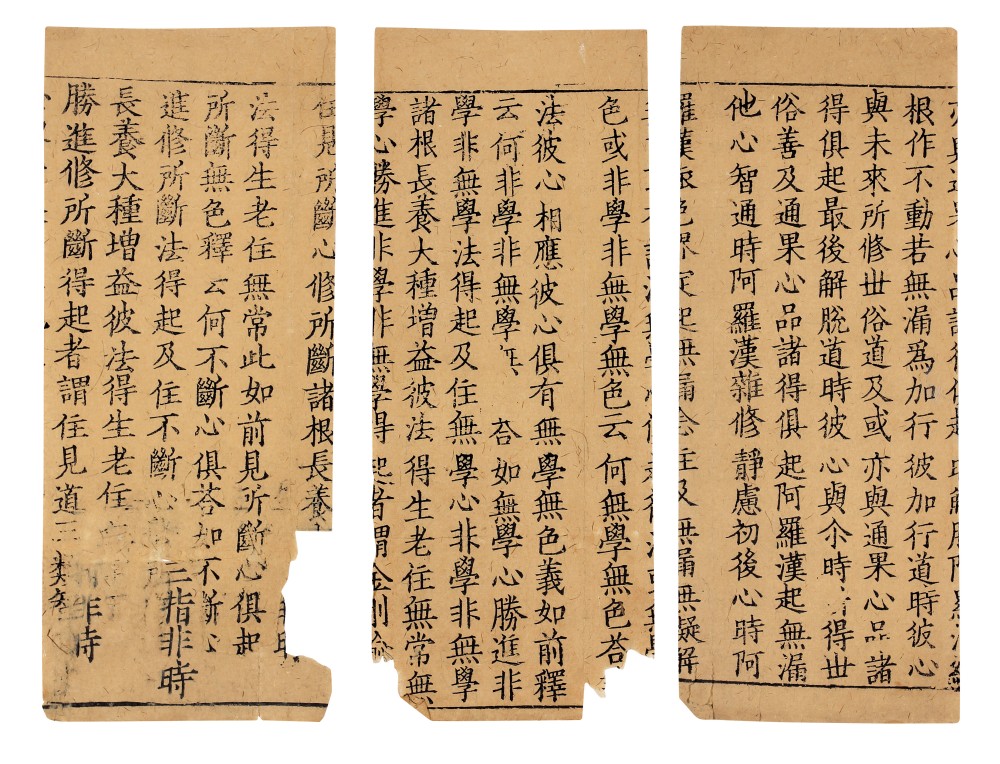 根作不動若無漏爲加行彼加行道時彼心
與未來所修世俗道及或亦與通果心品諸
得俱起最後解脫道時彼心與尒時得世
俗善及通果心品諸得俱起阿羅漢起無漏
他心智通時阿羅漢雜修靜慮初後心時阿
羅漢依色界定起無漏念住及無漏無礙解
色或非學非無學無色云何無學無色荅
法彼心相應彼心俱有無學無色義如前釋
云何非學非無學荅如無學心勝進非
學非無學法得起及住無學心非學非無學
諸根長養大種增益彼法得生老住無常無
學心勝進非學非無學得起者謂金剛喻
住見所斷心修所斷諸根長養
法得生老住無常此如前見所斷心俱起
所斷無色釋云何不斷心俱荅如不斷心
進修所斷法得起及住不斷心二指非時
長養大種增益彼法得生老住
勝進修所斷得起者謂住見道三類非時